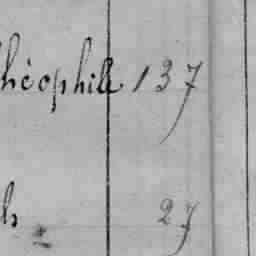 Théophile 137
ls 27